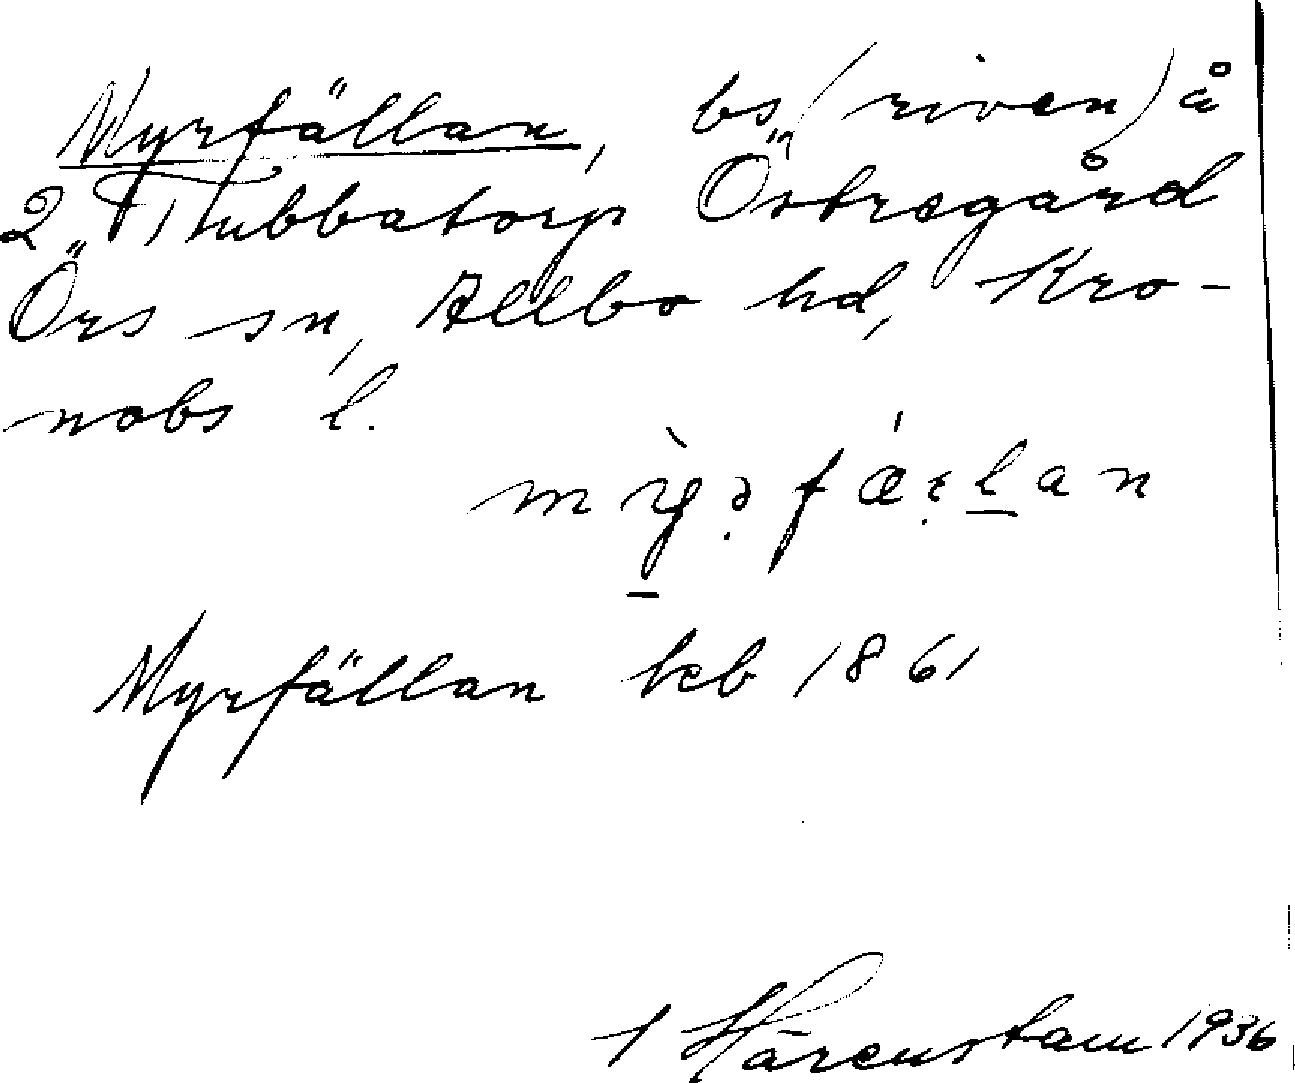 Myrfällan, bs (riven) å
2 Flubbatorp Östregård
Örs sn, Allbo hd, Kro-
nobs l.
Myrfällan kb 1861
1 Härenstam 1936